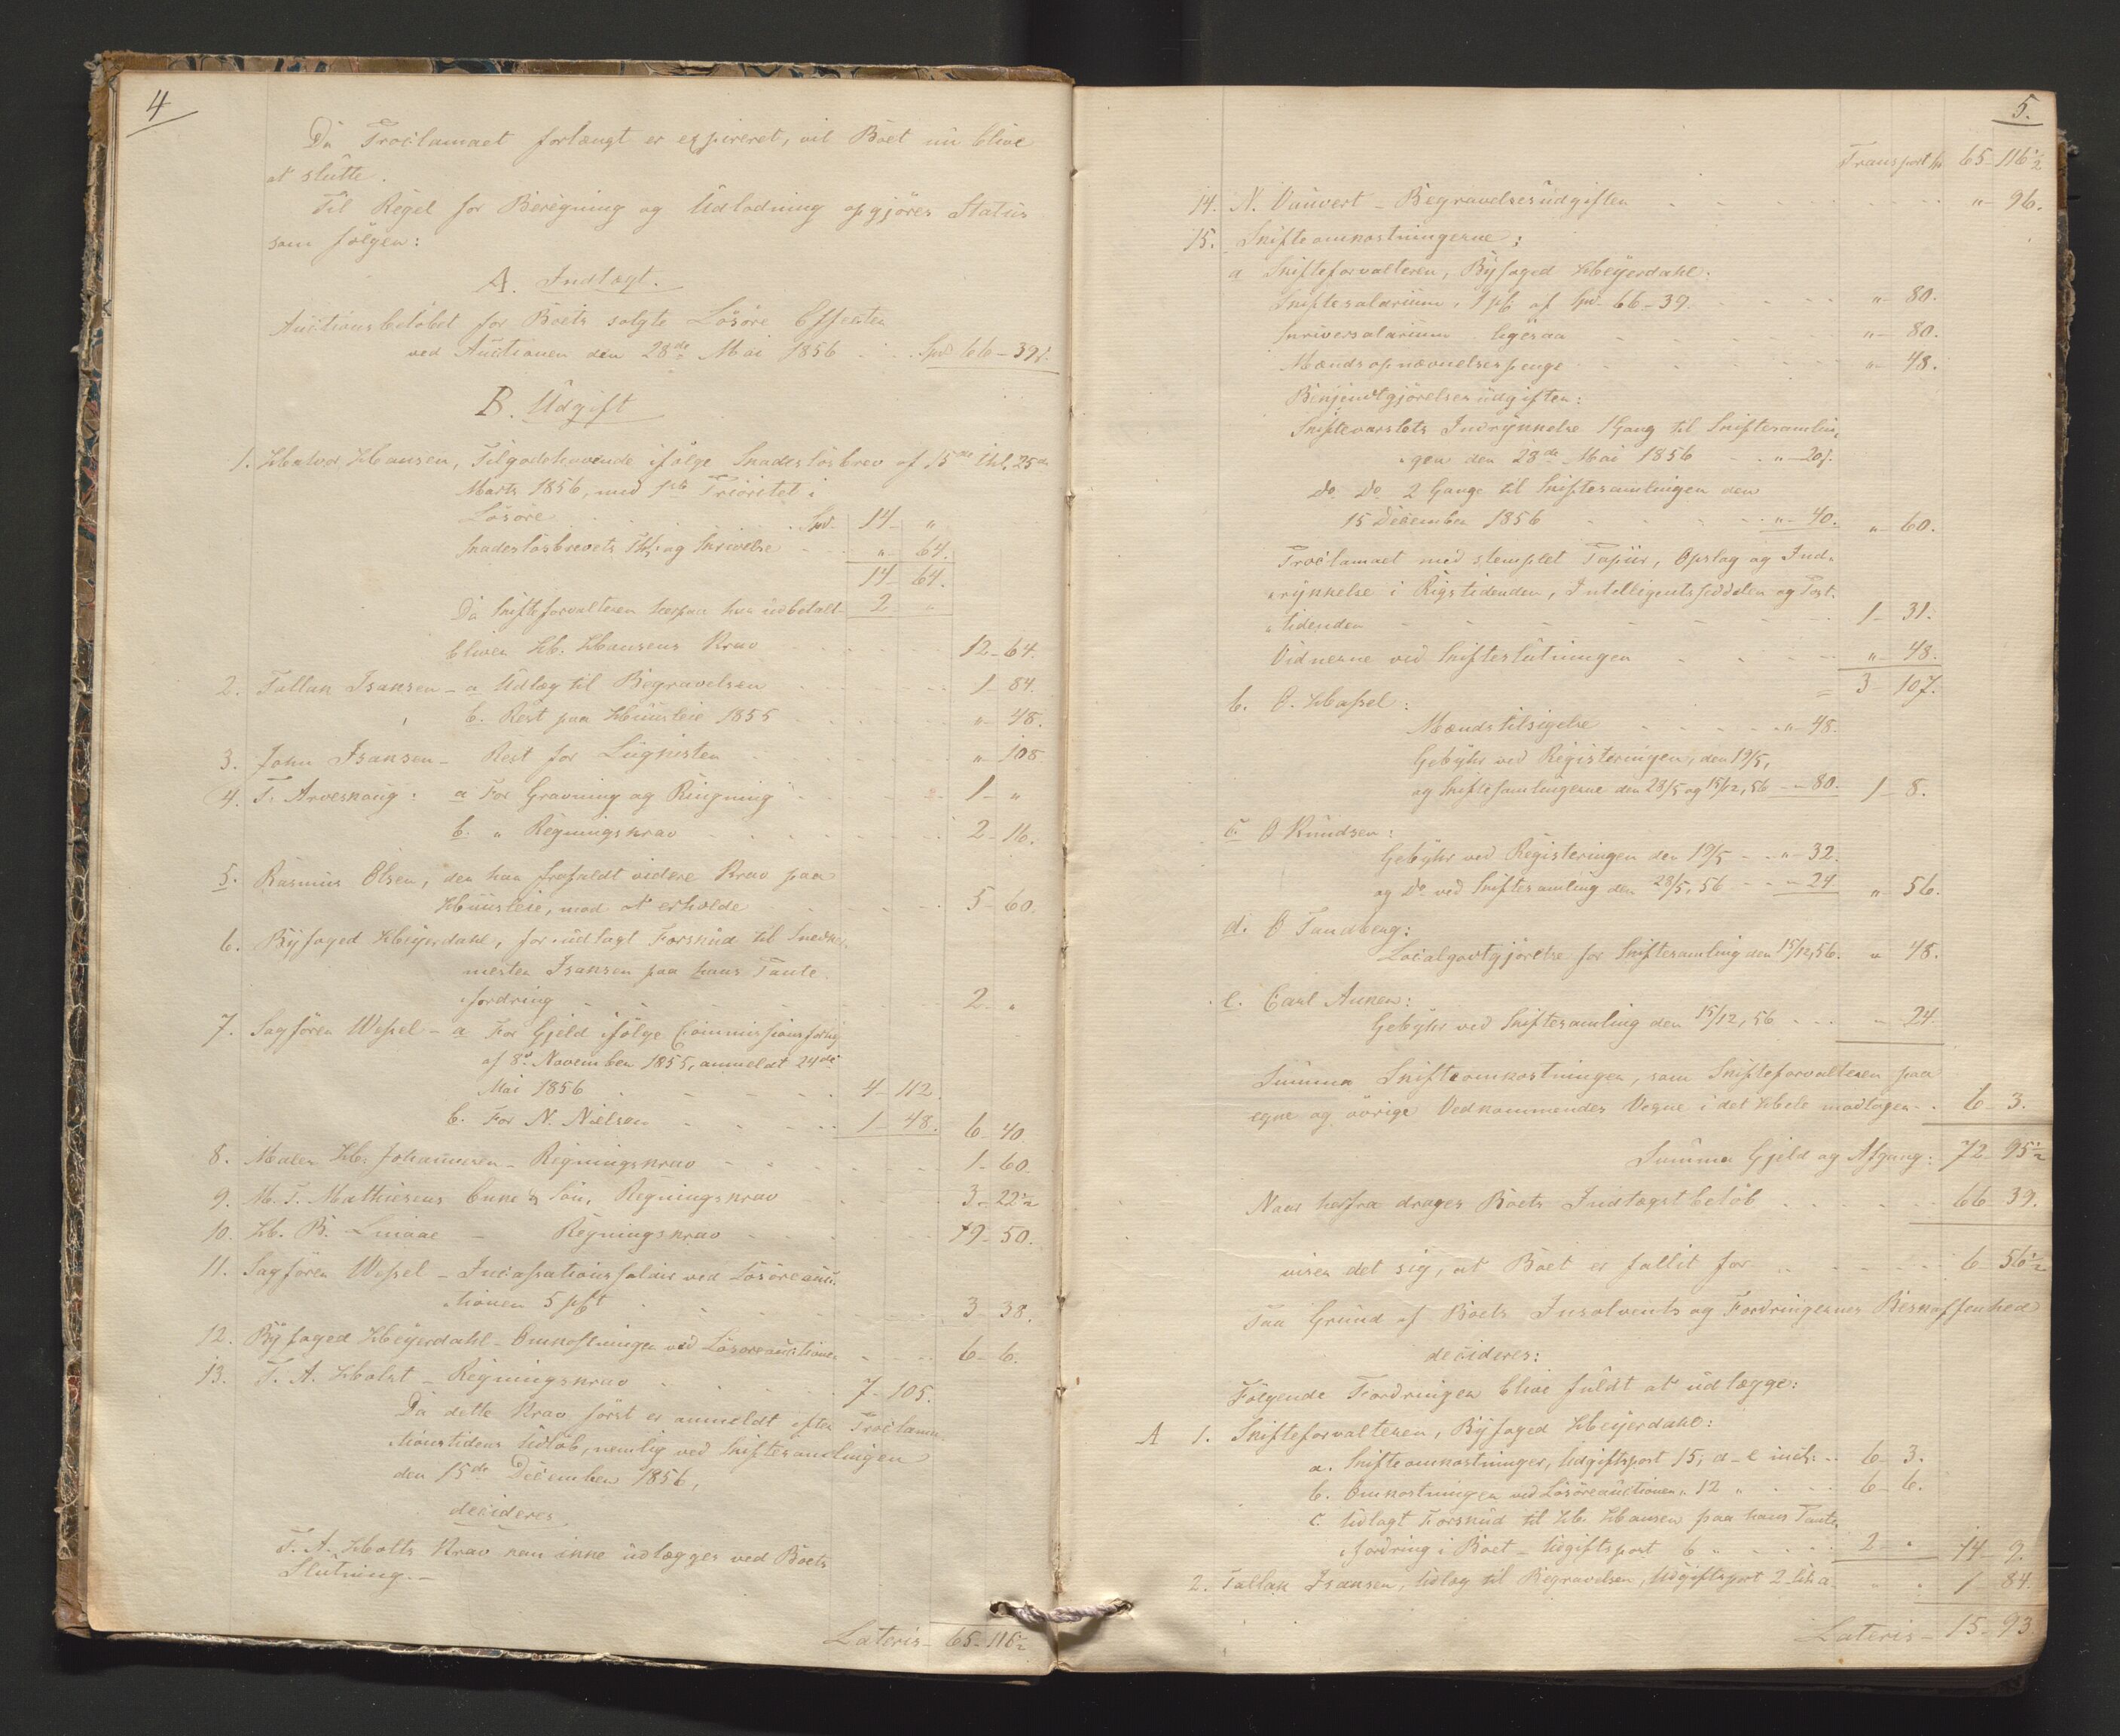 4
Da Proclamaet forlængst er expireret, vil Boet nu blive
at slutte.
Til Regel for Beregning og Udlodning opgjöres Status
som fölger:
A. Indtægt.
Auctionsbelöbet for Boets solgte Lösöre Effecter
ved Auctionen den 28de Mai 1856 . . . Spd 66 - 39 s.
B. Udgift
1. Halvor Hansen, Tilgodehavende ifölge Skadeslösbrev af 15de thl. 25de
Marts 1856, med 1ste Prioritet i
Lösöre . . . Spd. 14 - "
Skadeslösbrevets Thl. og Skrivelse " - 64.
14 - 64.
Da Skifteforvalteren herpaa har udbetalt 2 - "
bliver H. Hansens Krav 12 - 64.
2. Tallak Isaksen - a Udlæg til Begravelsen 1 - 84.
b. Rest paa Huusleie 1855 " - 48.
3. John Isaksen - Rest for Liigkisten " - 108
4. T. Arveskoug: a For Gravning og Ringning 1 - "
b. " Regningskrav 2 - 16.
5. Rasmus Olsen, der har frafaldt videre Krav paa
Huusleie, mod at erholde 5 - 60.
6. Byfoged Heyerdahl, for udlagt Forskud til Snedker-
mester Isaksen paa hans Pante-
fordring 2 - "
7. Sagförer Wessel - a For Gjeld ifölge Commissionsforlig
af 8de November 1855, anmeldt 24de
Mai 1856 4 - 112.
b. For N. Nielsen 1 - 48. 6 - 40.
8. Maler H. Johannesen - Regningskrav 1 - 60.
9. M. T. Mathiesens Enke & Sön, Regningskrav 3 - 22½
10. H. B. Smaae - Regningskrav 19 - 50.
11. Sagförer Wessel - Incassationssalair ved Lösöreauc-
tionen 5 pCt 3 - 38.
12. Byfoged Heyerdahl - Omkostninger ved Lösöreauctionen 6 - 6.
13. T. A. Holst - Regningskrav 7 - 105.
Da dette Krav först er anmeldt efter Proclama-
tionstidens Udlöb, nemlig ved Skiftesamlingen
den 15de December 1856,
decideres
T. A. Holts Krav kan ikke udlægges ved Boets
Slutning. -
Lateris - 65 - 116½
5.
Transport 65 - 116½
14. N. Vauvert - Begravelsesudgifter " - 96.
15. Skifteomkostningerne:
a Skifteforvalteren, Byfoged Heyerdahl:
Skiftesalarium, 1 pCt. af Spd. 66 - 39. " - 80.
Skriversalarium ligesaa " - 80.
Mændsopnævnelsespenge " - 48.
Bekjendtgjörelsesudgifter:
Skiftevarslets Indrykkelse 1 Gang til Skiftesamlin-
gen den 28de Mai 1856 " - 20 s.
Do Do 2 Gange til Skiftesamlingen den
15 December 1856 " - 40. " - 60.
Proclamaet med stemplet Papiir, Opslag og Ind-
rykkelse i Rigstidenden, Intelligentssedelen og Post-
tidenden 1 - 31.
Vidnerne ved Skifteslutningen " - 48.
= 3 - 107.
b. O. Hassel:
Mændstilsigelse " - 48.
Gebyhr ved Registeringen, den 19/5,
og Skiftesamlingerne den 28/5 og 15/12, 56 " - 80. 1 - 8.
c. O Knudsen:
Gebyhr ved Registeringen den 19/5 - " - 32.
og Do ved Skiftesamling den 28/5, 56 - " - 24 " - 56.
d. O Tandberg:
Localgodtgjörelse for Skiftesamling den 15/12, 56. " 48.
e. Carl Anker:
Gebyhr ved Skiftesamling den 15/12, 56 " 24.
Summa Skifteomkostninger, som Skifteforvalteren paa
egne og övrige Vedkommendes Vegne i det Hele modtager 6 - 3.
Summa Gjeld og Afgang: 72 - 95½
Naar herfra drages Boets Indtægtsbelöb 66 39.
viser det sig, at Boet er fallit for 6 56½
Paa Grund af Boets Insolvents og Fordringernes Beskaffenhed
decideres:
Fölgende Fordringer blive fuldt at udlægge:
A 1. Skifteforvalteren, Byfoged Heyerdahl:
a. Skifteomkostninger, Udgiftspost 15, a - e incl. 6 - 3.
b. Omkostninger ved Lösöreauctionen " 12 " 6 - 6.
c. Udlagt Forskud til H. Hansen paa hans Pante-
fordring i Boet - Udgiftspost 6 " 2 - " 14 - 9.
2. Tallak Isaksen, Udlæg til Begravelsen, Udgiftspost 2 Litr a 1 - 84.
Lateris - 15 - 93